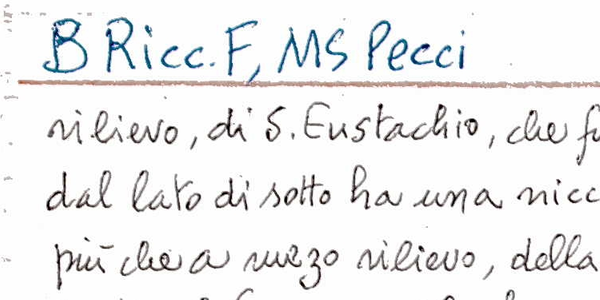 B Ricc. F, MS Pecci
rilievo, di S. Eustachio, che fu
dal lato di sotto ha una nicc
più che a mezzo rilievo, della